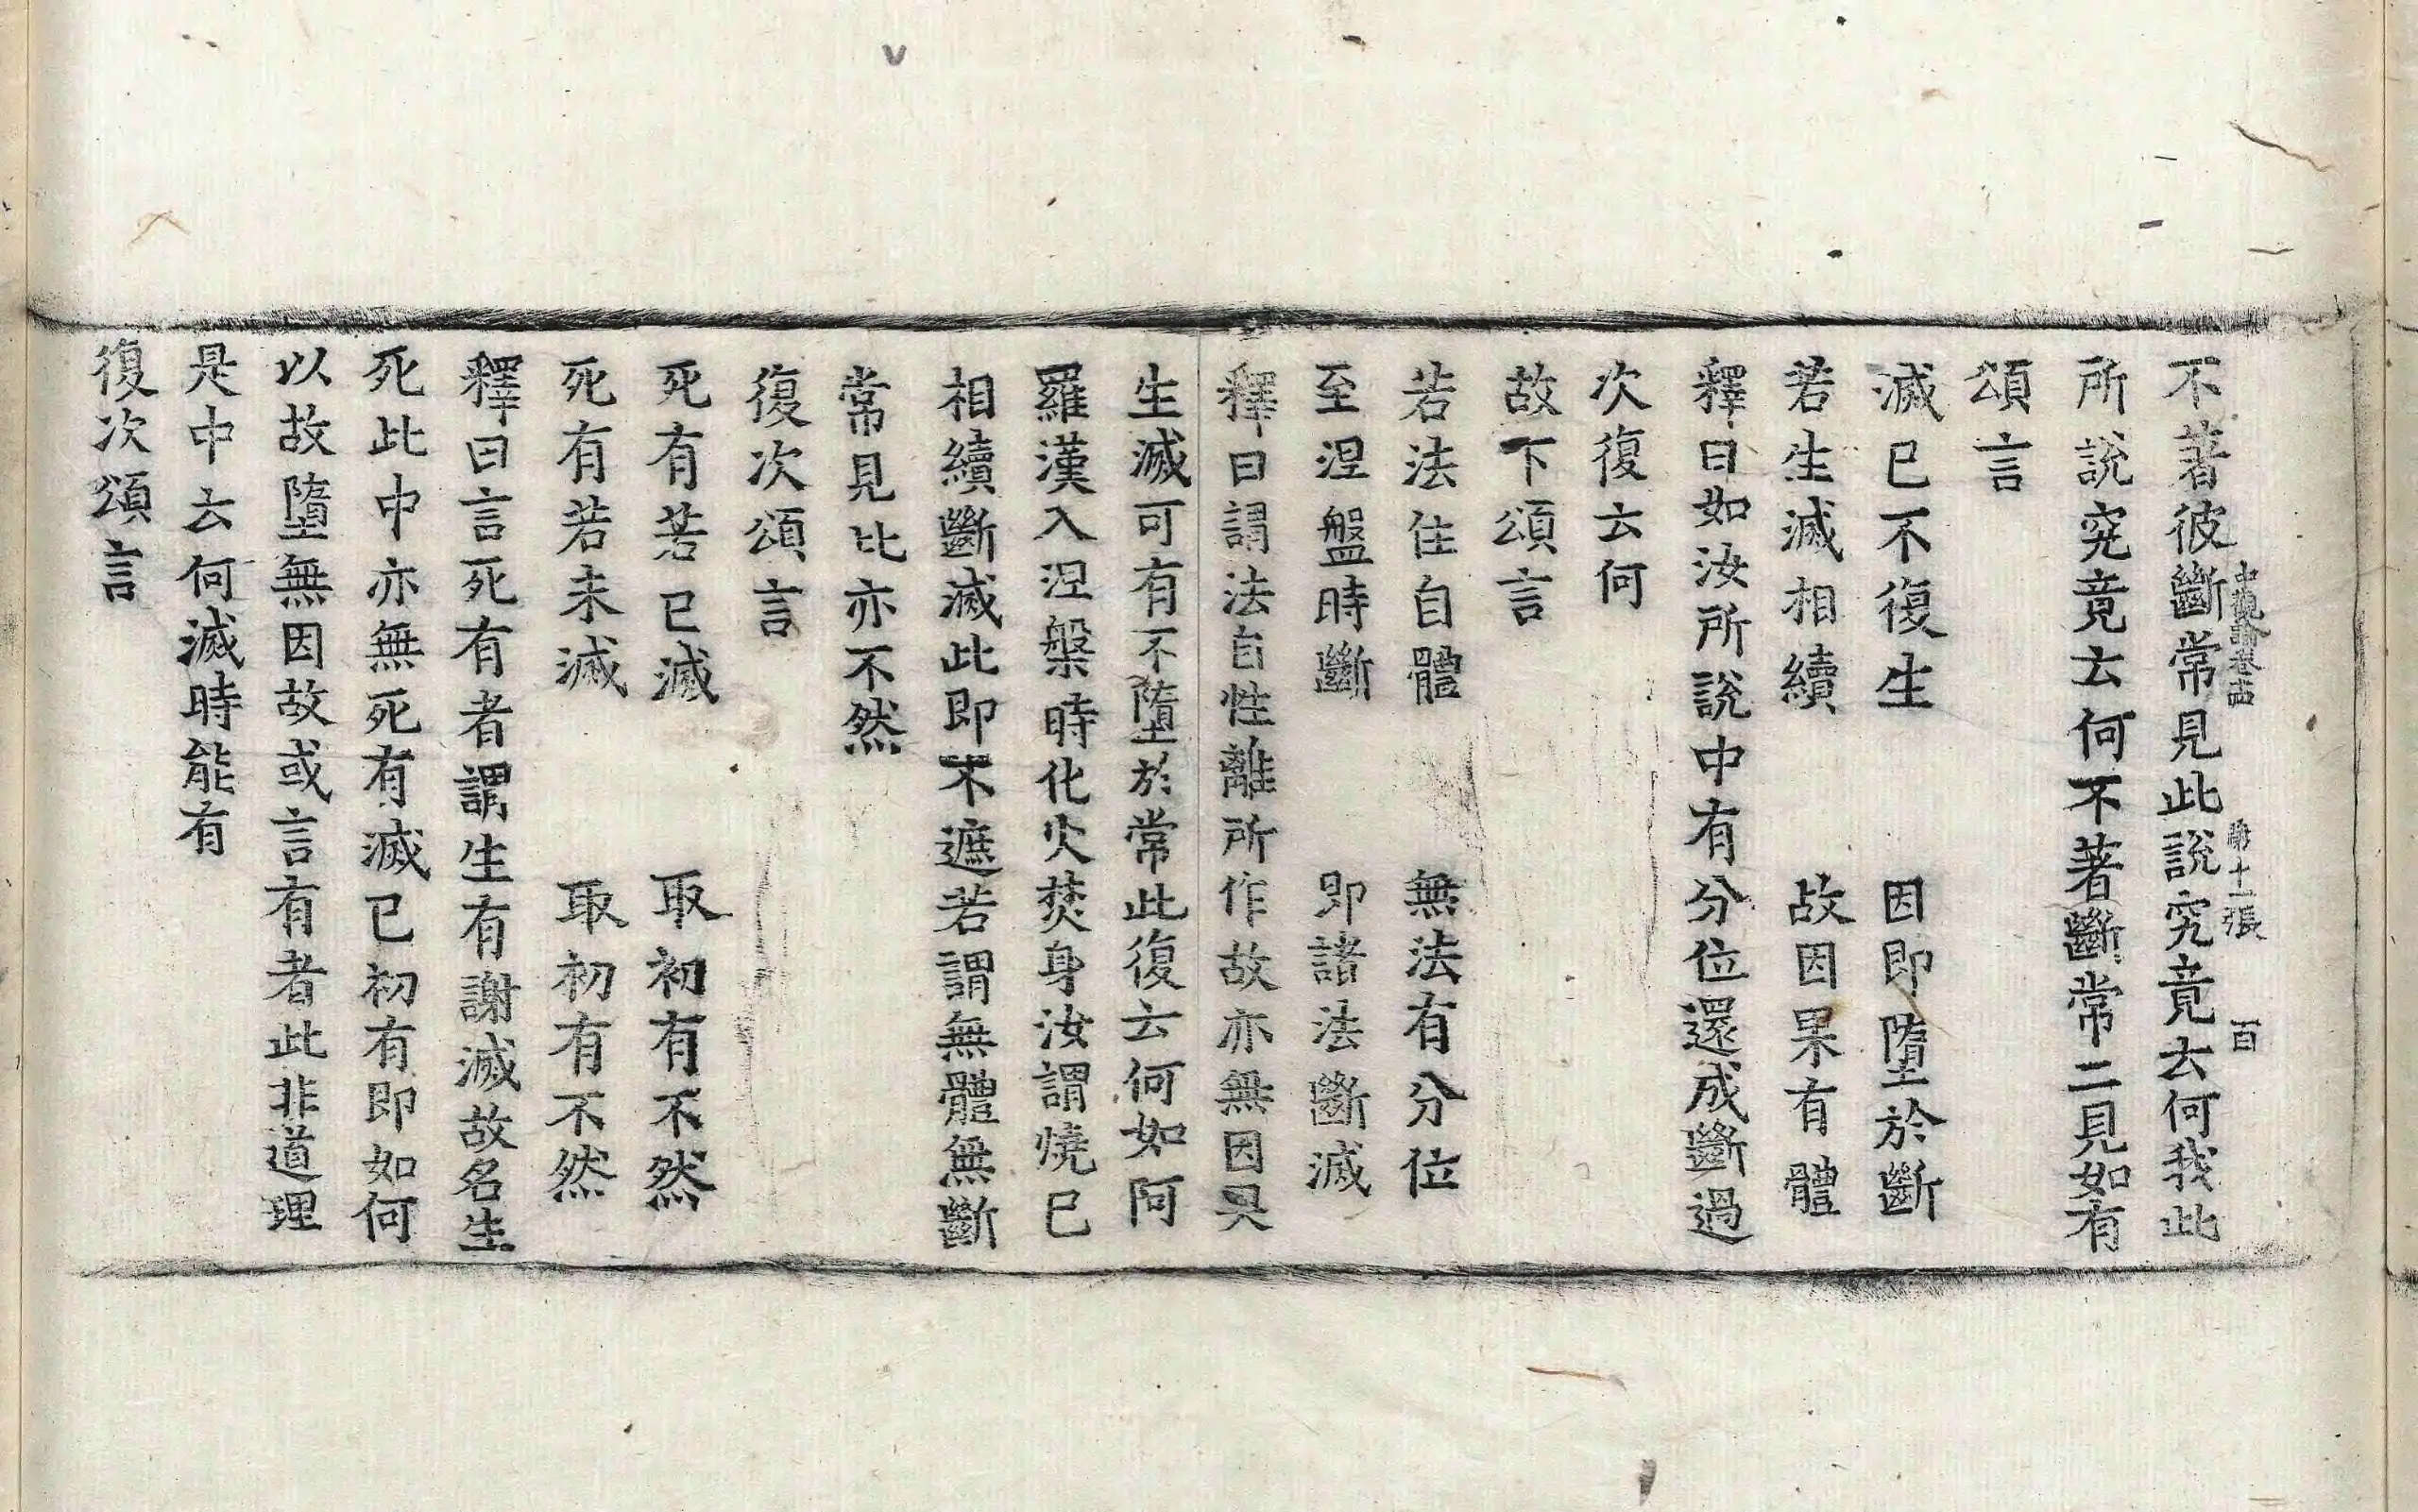 中觀論卷十四 第十一張 百
不著彼斷常見此說究竟去何我此
所說究竟去何不著斷常二見如有
頌言
滅已不復生 因即墮於斷
若生滅相續 故因果有體
釋曰如汝所說中有分位還成斷過
次復云何
故下頌言
若法住自體 無法有分位
至涅盤時斷 即諸法斷滅
釋曰謂法自性離所作故亦無因果
生滅可有不墮於常此復云何如阿
羅漢入涅槃時化火焚身汝謂燒已
相續斷滅此即不遮若謂無體無斷
常見比亦不然
復次頌言
死有若已滅 取初有不然
死有若未滅 取初有不然
釋曰言死有者謂生有謝滅故名生
死此中亦無死有滅已初有即如何
以故墮無因故或言有者此非道理
是中云何滅時能有
復次頌言